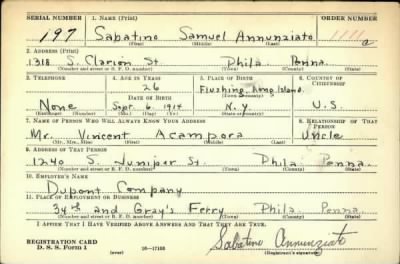 SERIAL NUMBER 1. NAME (Print) ORDER NUMBER
197 Sabatino Samuel Annunziato a
(First) (Middle) (Last)
2. ADDRESS (Print)
1318 S. Clarion St. Phila Penna.
(Number and street or R. F. D. number) (Town) (County) (State)
3. TELEPHONE 4. AGE IN YEARS 5. PLACE OF BIRTH 6. COUNTRY OF CITIZENSHIP
26 Flushing Long Island.
DATE OF BIRTH (Town or county)
None Sept. 6 1914 N.Y. U.S.
(Exchange) (Number) (Mo.) (Day) (Yr.) (State or country)
7. NAME OF PERSON WHO WILL ALWAYS KNOW YOUR ADDRESS 8. RELATIONSHIP OF THAT PERSON
Mr. Vincent Acampora Uncle
(Mr., Mrs., Miss) (First) (Middle) (Last)
9. ADDRESS OF THAT PERSON
1240 S. Juniper St. Phila Penna.
(Number and street or R. F. D. number) (Town) (County) (State)
10. EMPLOYER'S NAME
Dupont Company
11. PLACE OF EMPLOYMENT OR BUSINESS
34th and Gray's Ferry Phila Penna
(Number and street or R. F. D. number) (Town) (County) (State)
I AFFIRM THAT I HAVE VERIFIED ABOVE ANSWERS AND THAT THEY ARE TRUE.
REGISTRATION CARD
D. S. S. Form 1 16-17105 Sabatino Annunziato
(Registrant's signature)